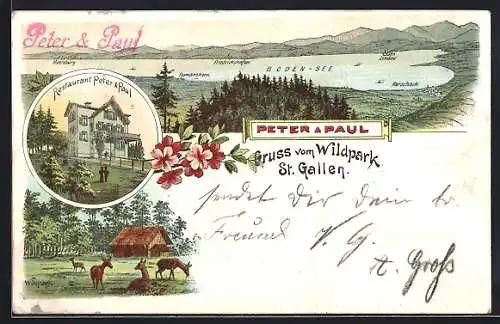 Peter & Paul
Meersburg
Friedrichshafen
Lindau
BODEN-SEE
Romanshorn
Rorschach
Restaurant Peter & Paul
PETER & PAUL
Gruss vom Wildpark
St. Gallen.
sendet Dir Dein tr.
Freund V. G.
A. Groß
Wildpark